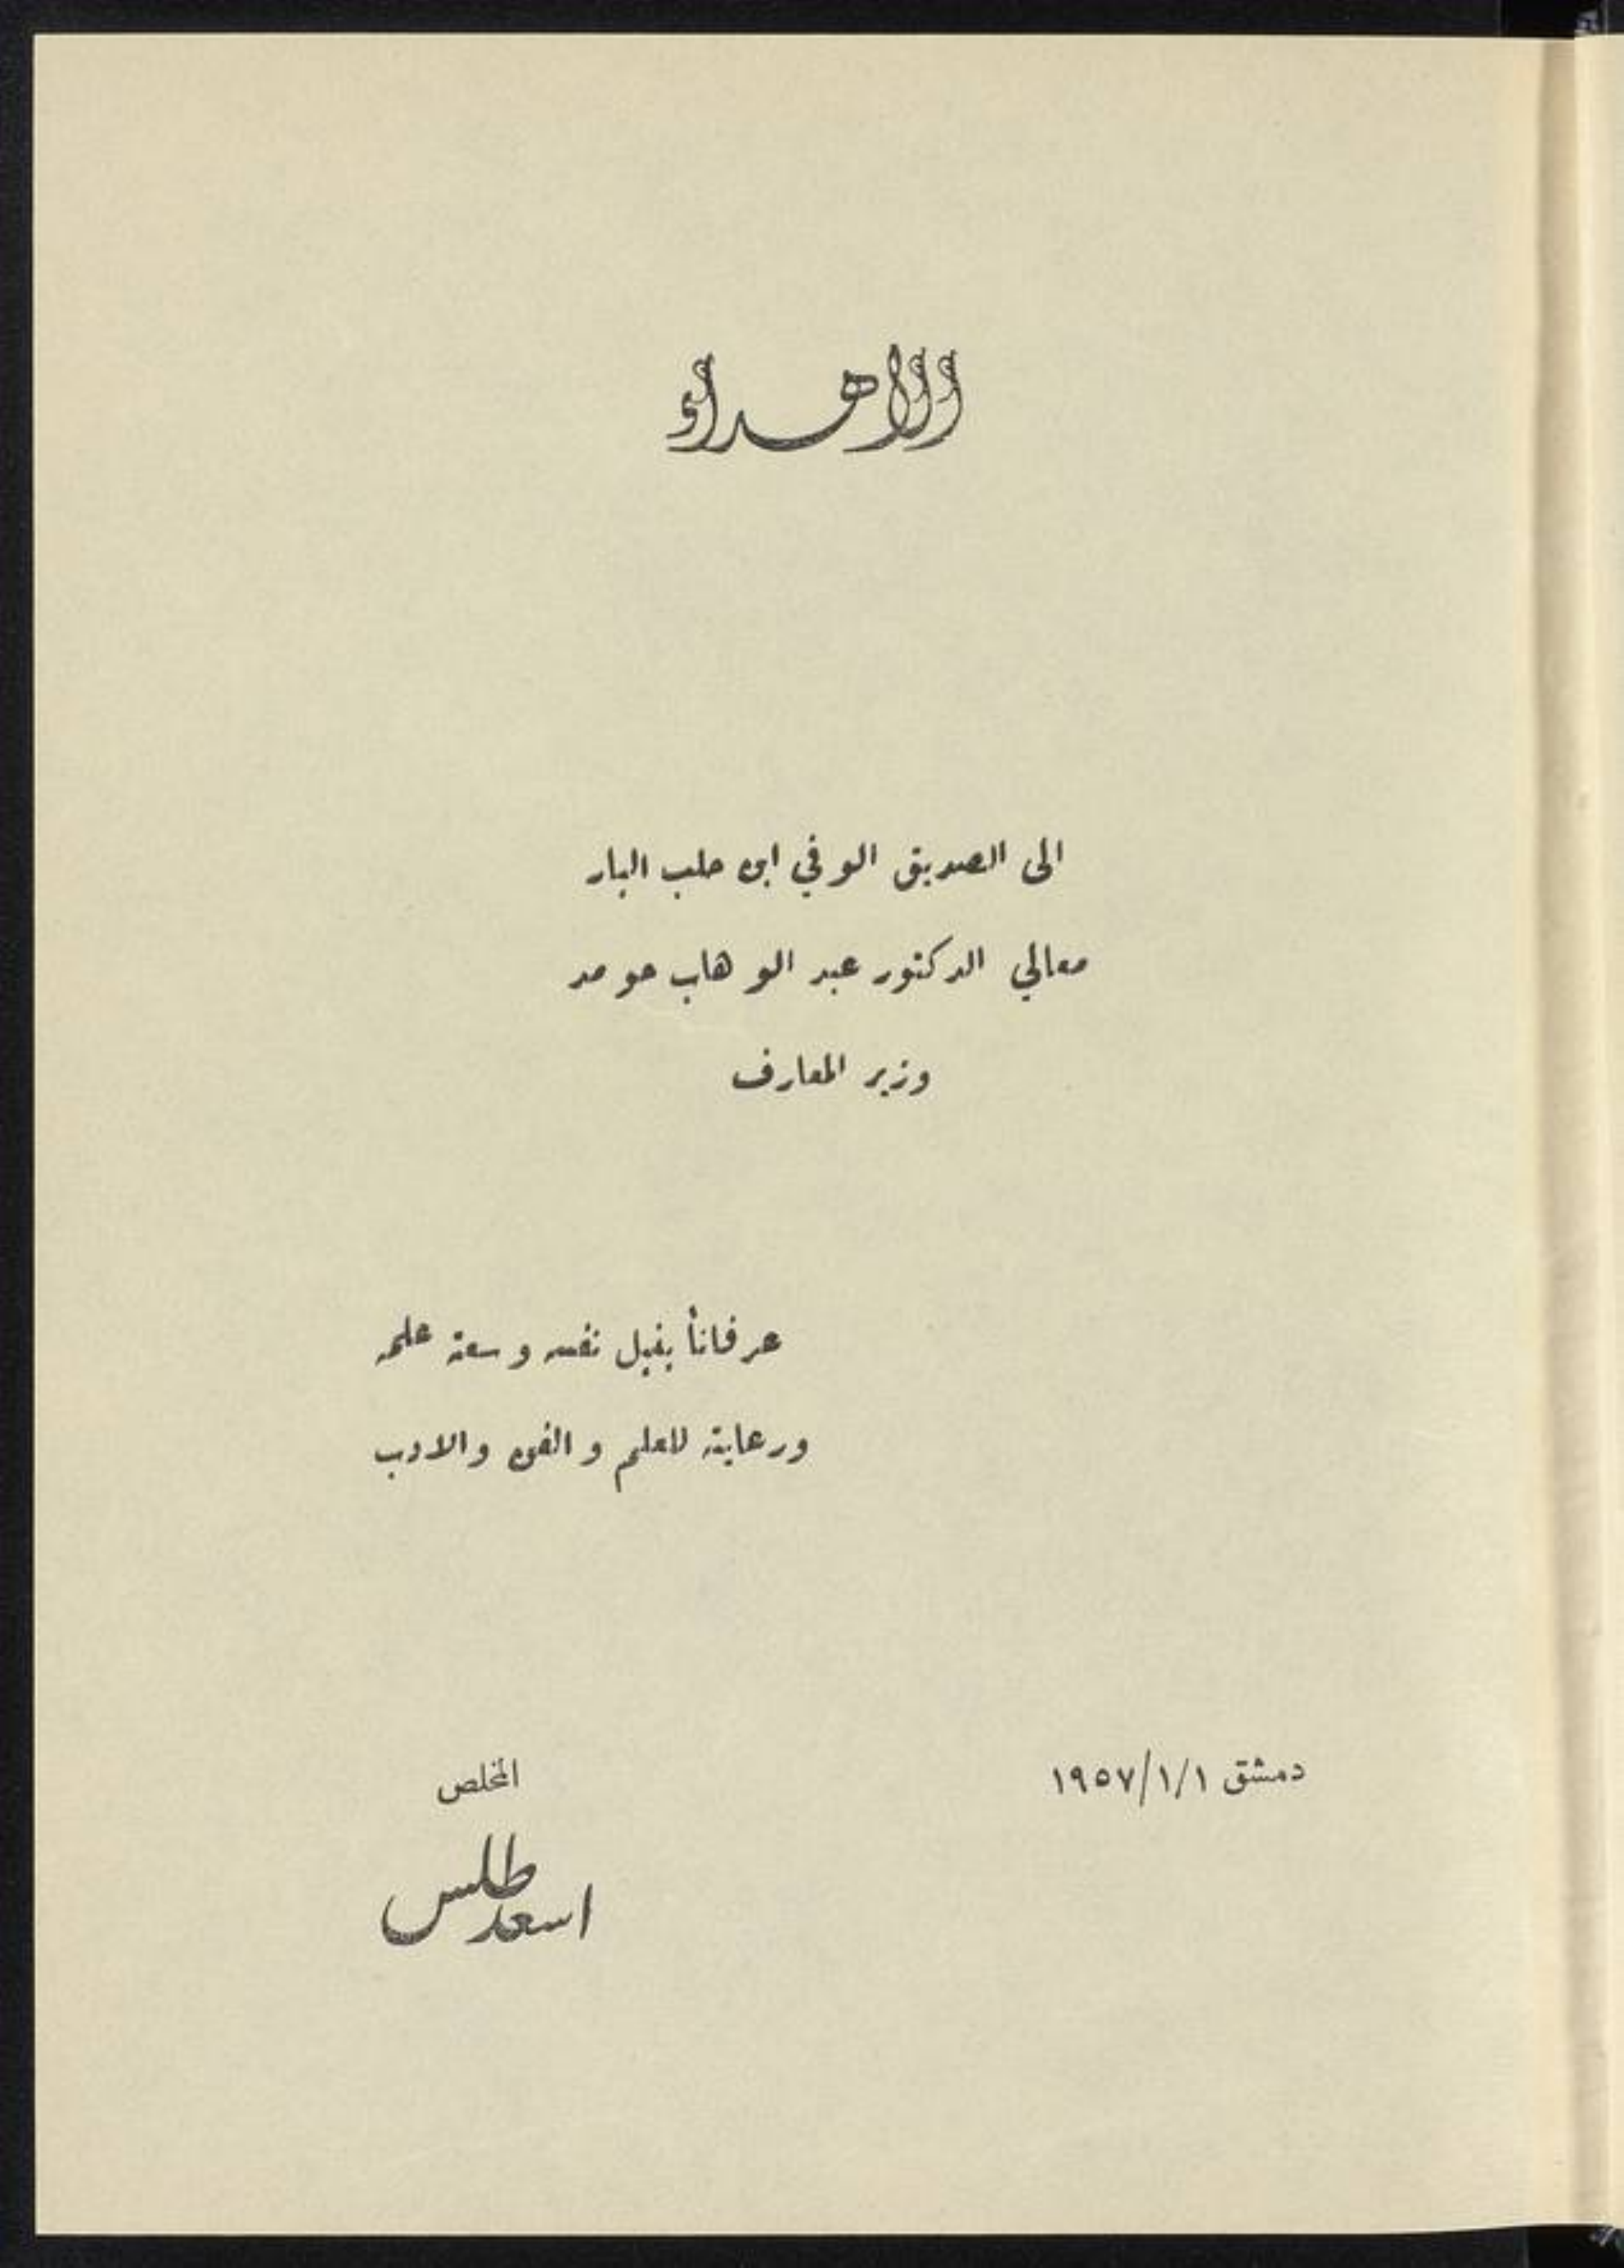 الاهداء
الى الصديق الوفي ابن حلب البار
معالي الدكتور عبد الوهاب حومد
وزير المعارف
عرفاناً بنبل نفسه وسعة علمه
ورعايته للعلم والفن والادب
دمشق ١/١/١٩٥٧
المخلص
اسعد طلس